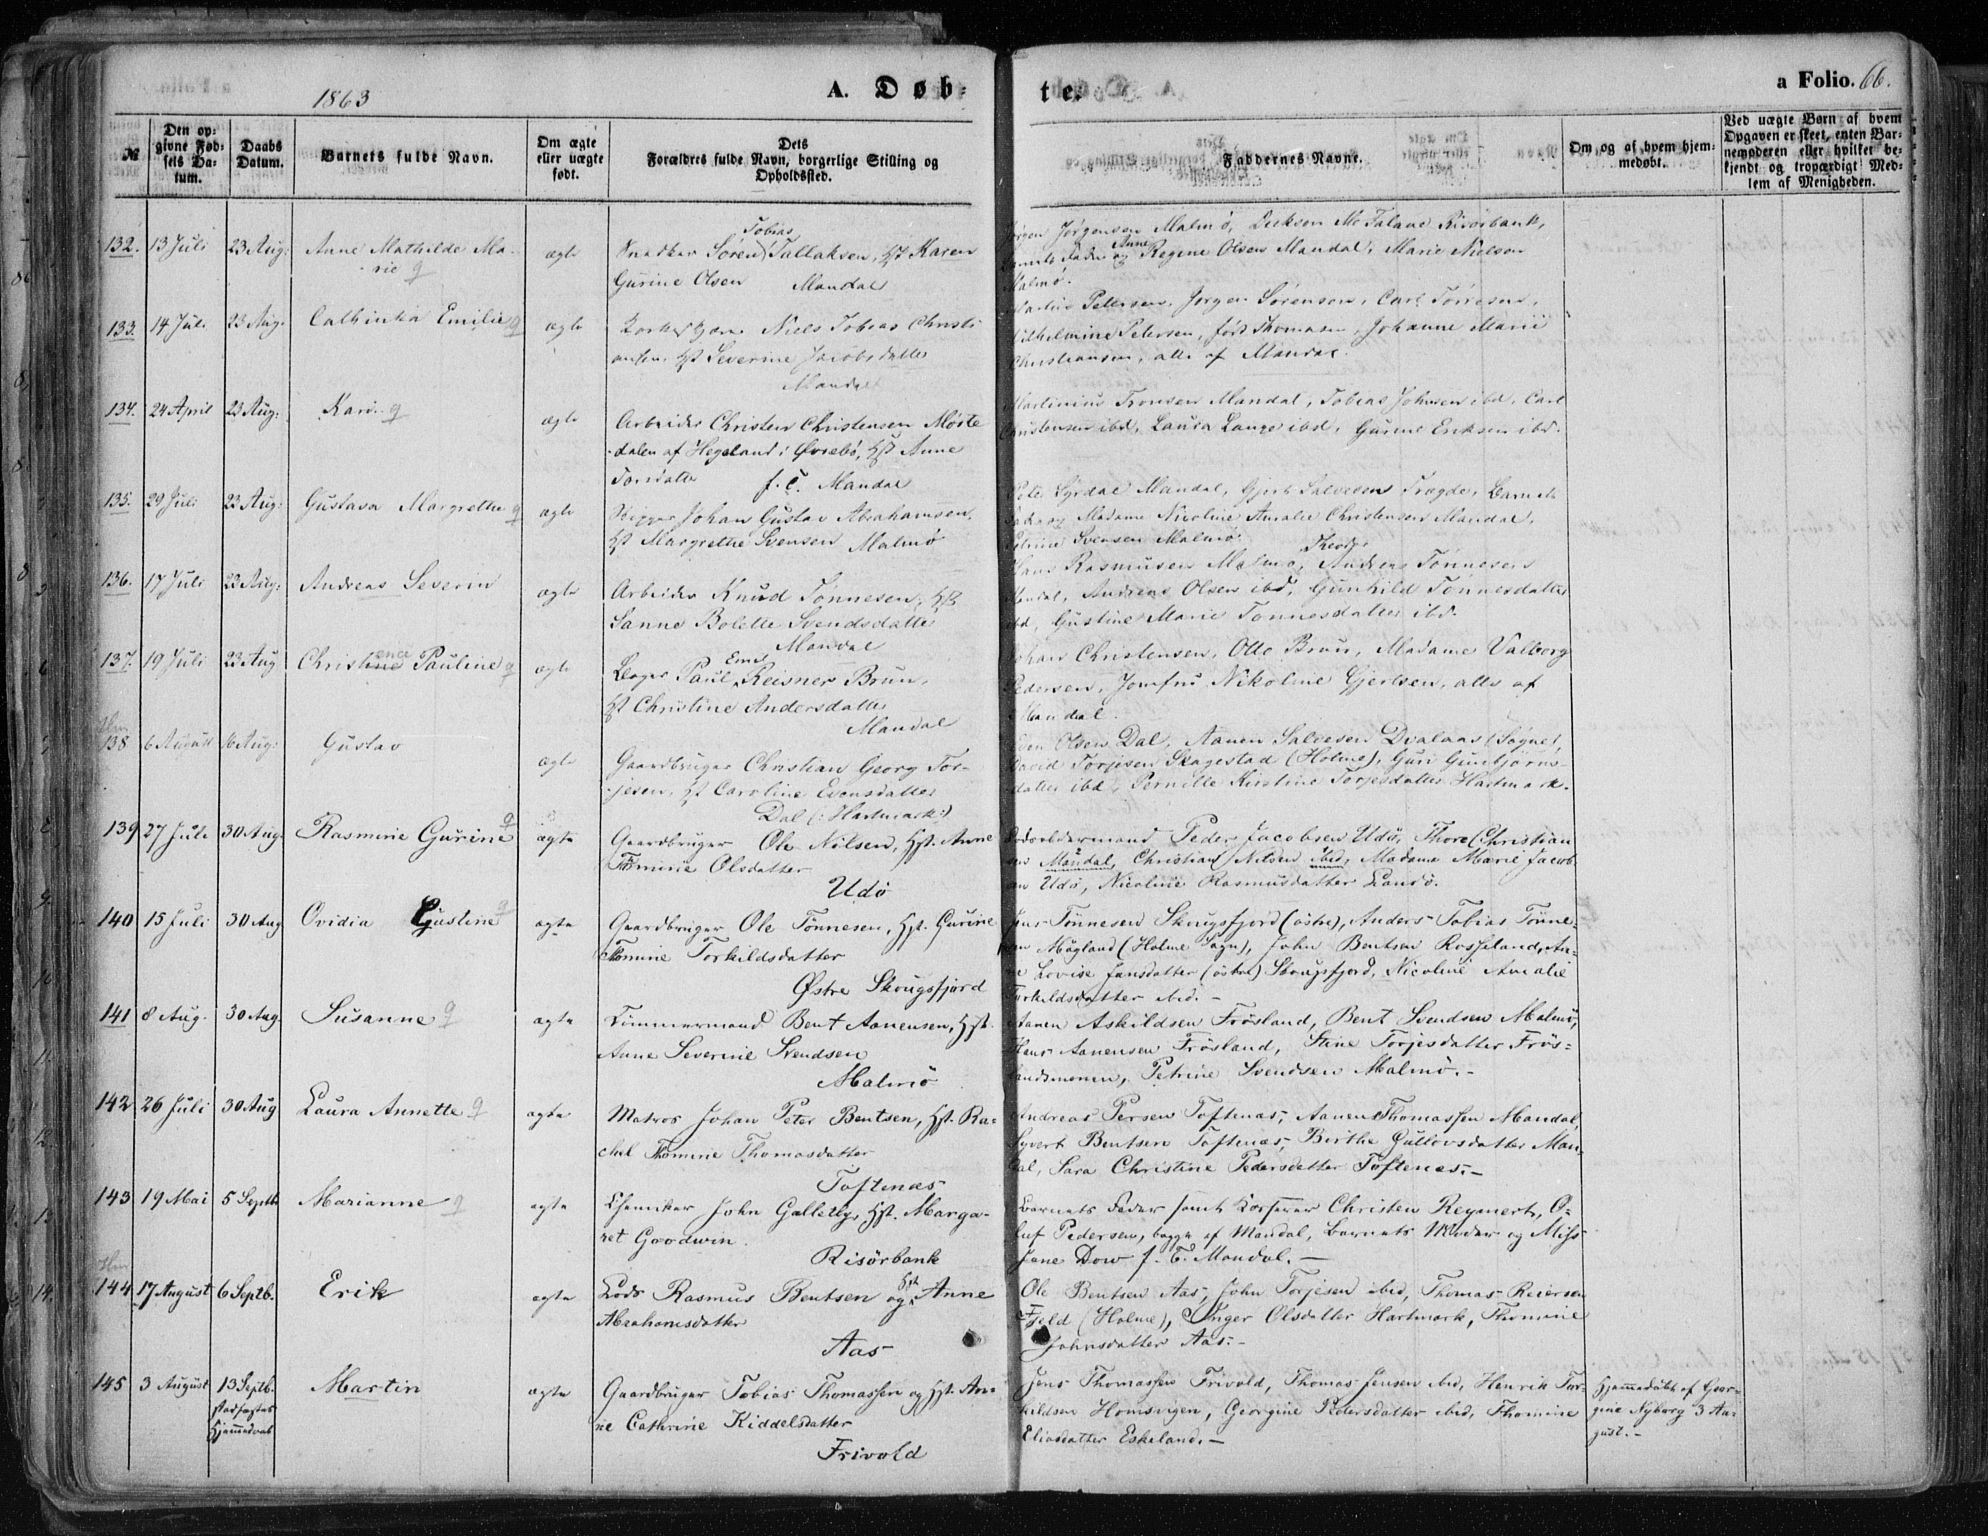 1863
A. Døb-
te.
a Folio. 66.
№
Den op-
givne Fød-
sels Da-
tum.
Daabs
Datum.
Barnets fulde Navn.
Om ægte
eller uægte
født.
Dets
Forældres fulde Navn, borgerlige Stilling og
Opholdssted.
Faddernes Navne.
Om og af hvem hjem-
medøbt.
Ved uægte Børn af hvem
Opgaven er skeet, enten Bar-
nemoderen eller hvilket be-
kjendt og troværdigt Med-
lem af Menigheden.
132. 13 Juli 23 Aug: Anne Mathilde Ma-
rie
ægte
Tobias
Snedker Søren Tallaksen, Hst Karen
Gurine Olsen Mandal
Jørgen Jørgensen Malmø, Mc Falane Risørbank,
Barnets Fader og Anne Regine Olsen Mandal, Marie Nielsen
Malmø.
133. 14 Juli 23 Aug. Cathinka Emilie
ægte
Niels Tobias Christi
ansen, Hst Severine Jacobsdatter
Mandal
Petersen, Jørgen Sørensen, Carl Torresen,
Vilhelmine Petersen, født Thomasen, Johanne Marie
Christiansen, alle af Mandal.
134. 24 April 23 Aug: Kari
ægte
Arbeider Christen Christensen Møste
dalen af Hegeland i Øvrebø, Hst Anne
Torsdatter f. T. Mandal
Martinius Tronsen Mandal, Tobias Johnsen ibd, Carl
Christensen ibd, Laura Lange ibd, Gurine Eriksen ibd.
135. 29 Juli 23 Aug: Gustava Margrethe
ægte
Skipper Johan Gustav Abrahamsen,
Hst Margrethe Svensen Malmø
Syrdal Mandal, Gjert Salvesen Trægde, Barnets
Fader og Madame Nicoline Amalie Christensen Mandal,
Petrine Svensen Malmø.
136. 17 Juli 23 Aug: Andreas Severin
ægte
Arbeider Knud Tønnesen, Hst
Sanne Bolette Svendsdatter
Mandal
Hans Rasmussen Malmø, Andreas Tønnesen
Mandal, Andreas Olsen ibd, Gunhild Tønnesdatter
ibd, Gustine Marie Tønnesdatter ibd.
137. 19 Juli 23 Aug Christine Pauline
ence
ægte
Emil
Bager Paul Reisner Brun,
Hst Christine Andersdatter
Mandal
Johan Christensen, Otto Brun, Madame Valborg
Pedersen, Jomfru Nikoline Gjertsen, alle af
Mandal.
Hm
138 6 August 16 Aug: Gustav
ægte
Gaardbruger Christian Georg Tor-
jesen, Hst Caroline Evensdatter
Dal (: Hartmark:)
Even Olsen Dal, Aanen Salvesen Dvalaas (Søgne),
David Torjesen Skagestad (Holme), Guri Gunbjørns-
datter ibd, Pernille Kirstine Torjesdatter Hartmark.
139 27 Juli 30 Aug. Rasmine Gurine
ægte
Gaardbruger Ole Nilsen, Hst. Anne
Tomine Olsdatter
Udø
Lodsoldermand Peder Jacobsen Udø, Thore Christian
sen Mandal, Christian Nilsen ibid, Madame Marie Jacob
sen Udø, Nicoline Rasmusdatter Landø.
140 15 Juli 30 Aug Ovidia Gustine
ægte
Gaardbruger Ole Tønnesen, Hst. Gurine
Tomine Torkildsdatter
Østre Skougsfjord
Jens Tønnesen Skougsfjord (østre), Anders Tobias Tønne-
sen Møgland (Holme Sogn), John Bentsen Rosseland, An-
ne Lovise Jansdatter (østre) Skougsfjord, Nicoline Amalie
Torkildsdatter ibid.-
141 8 Aug. 30 Aug. Susanne
ægte
Tømmermand Bent Aanensen, Hst.
Anne Severine Svendsen
Malmö
Aanen Askildsen Frösland, Bent Svendsen Malmö,
Hans Aanensen Frösland, Stine Torjesdatter Frös-
landsmonen, Petrine Svendsen Malmö.-
142 26 Juli 30 Aug Laura Annette
ægte
Matros Johan Peter Bentsen, Hst. Ra-
chel Tomine Thomasdatter
Toftenæs
Andreas Persen Toftenæs, Aanen Thomassen Mandal,
Syvert Bentsen Toftenæs, Birthe Gullovsdatter Man-
dal, Sara Christine Pedersdatter Toftenæs.-
143 19 Mai 5 Septb Marianne
ægte
Chemiker John Galletly, Hst. Marga-
ret Goodwin.
Risörbank
Barnets Fader samt Christen Reymert, O-
luf Pedersen, begge af Mandal, Barnets Moder og Miss
Jane Dow f. T. Mandal.-
Hm
144 17 August 6 Septb. Erik
ægte
Lods Rasmus Bentsen og Hst Anne
Abrahamsdatter
Aas
Ole Bentsen Aas, John Torjesen ibid, Thomas Reiersen
Fjeld (Holme), Inger Olsdatter Hartmark, Thomine
Johnsdatter Aas.-
145 3 August 13 Septb. Martin
stadfæstet
Hjemmedaab
ægte
Gaardbruger Tobias Thomassen og Hst. An-
ne Cathrine Kiddelsdatter
Frivold
Jens Thomassen Frivold, Thomas Jensen ibid, Henrik Tor-
kildsen Homsvigen, Georgine Pedersdatter ibid, Thomine
Eliasdatter Eskeland.-
Hjemmedöbt af Geor-
gine Nyborg 3 Au-
gust.-